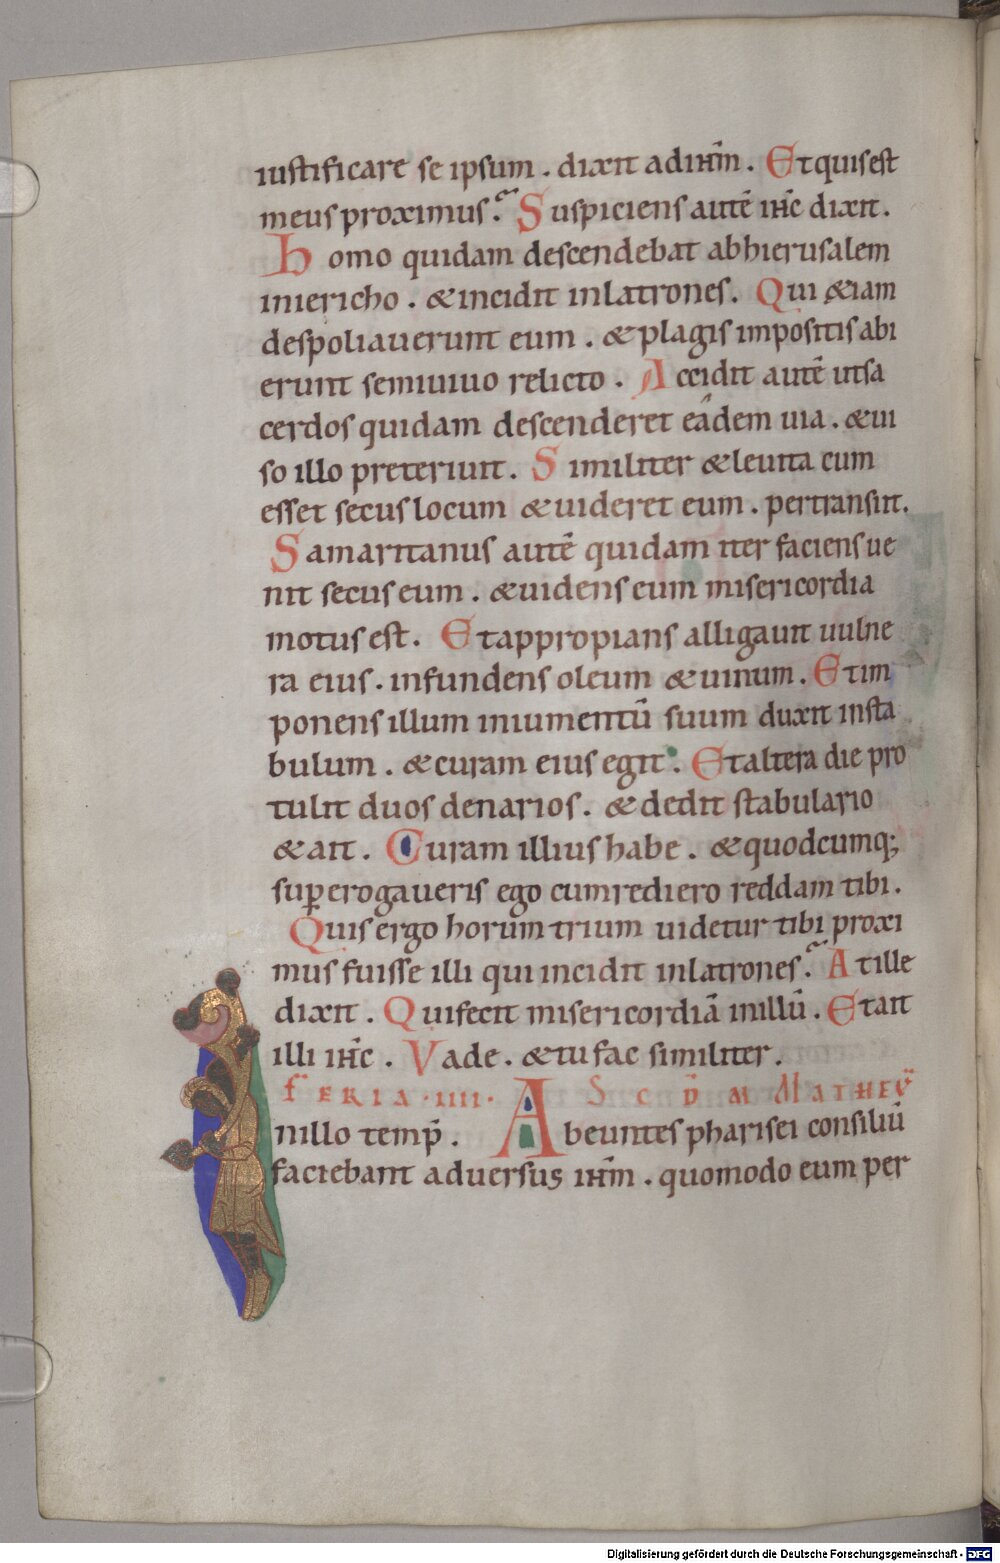 iustificare se ipsum . dixit ad ihm̄ . Et quis est
meus proximus? Suspiciens autē ihc̄ dixit .
Homo quidam descendebat ab hierusalem
in iericho . & incidit in latrones . Qui &iam
despoliaverunt eum . & plagis impositis abi
erunt semiuiuo relicto . Accidit autē ut sa
cerdos quidam descenderet eadem uia . & ui
so illo preteriuit . Similiter & leuita cum
esset secus locum & uideret eum . pertransiit .
Samaritanus autē quidam iter faciens ue
nit secus eum . & uidens eum misericordia
motus est . Et appropians alligauit uulne
ra eius . infundens oleum & uinum . Et im
ponens illum in iumentū suum duxit in sta
bulum . & curam eius egit . Et altera die pro
tulit duos denarios . & dedit stabulario
& ait . Curam illius habe . & quodcumq;
sup̄erogaueris ego cum rediero reddam tibi .
Quis ergo horum trium uidetur tibi proxi
mus fuisse illi qui incidit in latrones? At ille
dixit . Qui fecit misericordiā in illū . Et ait
illi ihc̄ . Vade . & tu fac similiter .
FERIA · IIII · SCD̄M MATHEŪ
In illo temp̄ . Abeuntes pharisei consiliū
faciebant adversus ihm̄ . quomodo eum per
Digitalisierung gefördert durch die Deutsche Forschungsgemeinschaft - DFG